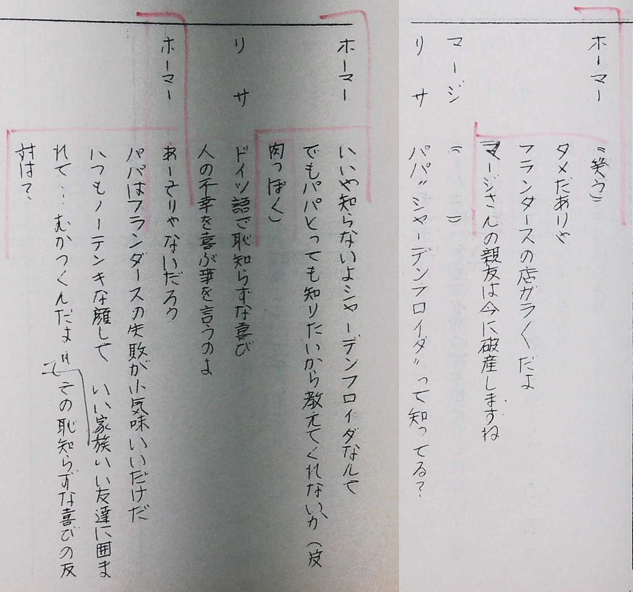 ホーマー
(笑う)
ダメだありゃ
フランダースの店ガラくだよ
マージさんの親友は今に破産しますね
マージ
( )
リサ
パパ〝シャーデンフロイダ〟って知ってる?
ホーマー
いいや知らないよシャーデンフロイダなんて
でもパパとっても知りたいから教えてくれないか(皮
肉っぽく)
リサ
ドイツ語で恥知らずな喜び
人の不幸を喜ぶ事を言うのよ
ホーマー
あーそりゃないだろう
パパはフランダースの失敗が小気味いいだけだ
いつもノーテンキな顔して いい家族いい友達に囲ま
れて…むかつくんだよ その恥知らずな喜びの反
対は?